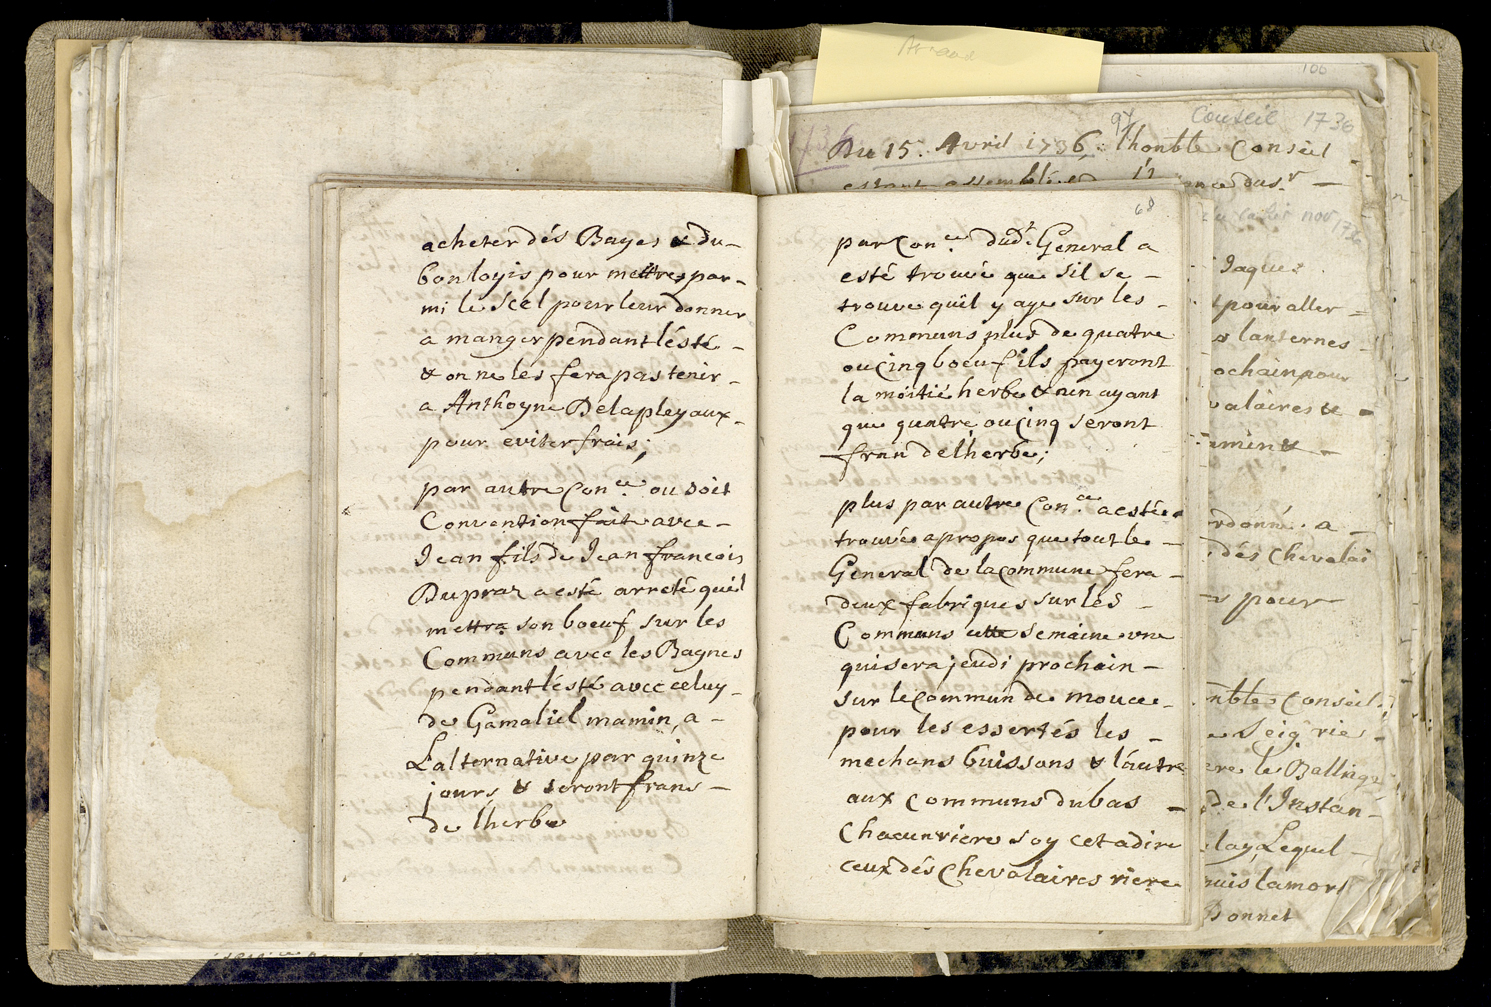 acheter dés Bayes & du-
bon loyis pour mettres par-
mi le Scel pour leur donner
a manger pendant lésté -
& on ne les fera pas tenir -
a Anthoyne Delapleyaux -
pour eviter frais;
par autre Con.ce ou soit
Convention fait avec -
Jean fils de Jean francois
Dupraz a esté arreté quil
mettra son boeuf sur les
Communs avec les Bagnes
pendant lésté avec celuy -
de Gamaliel mamin, a -
Lalternative par quinze
jours & seront frans -
de lherbe
68
par Con.ce dud.t General a
esté trouvé que sil se -
trouve quil y aye sur les -
Communs plus de quatre
ou cinq boeuf ils payeront
la moitié herbe & nen ayant
que quatre ou cinq seront
fran de lherbe;
plus par autre Con.ce a estée
trouvée a propos que tout le -
General de la commune fera -
deux fabriques sur les -
Communs cette semaine une
qui sera jeudi prochain -
sur le Commun de mouce -
pour les essertés les -
mechans buissons & lautre
aux Communs du bas -
Chacun riere soy cet a dire
ceux dés Chevalaires riere
106
97 Conseil 1736
Du 15. Avril 1736, lhonble Conseil
Jaques
pour aller -
lanternes -
ochain pour
valaires & -
ordonné. a -
dés Chevalai
pour
nble Conseil
Seig rie -
ere le Balliq
de l'Instan-
Lequel -
puis la mort
Bonnet